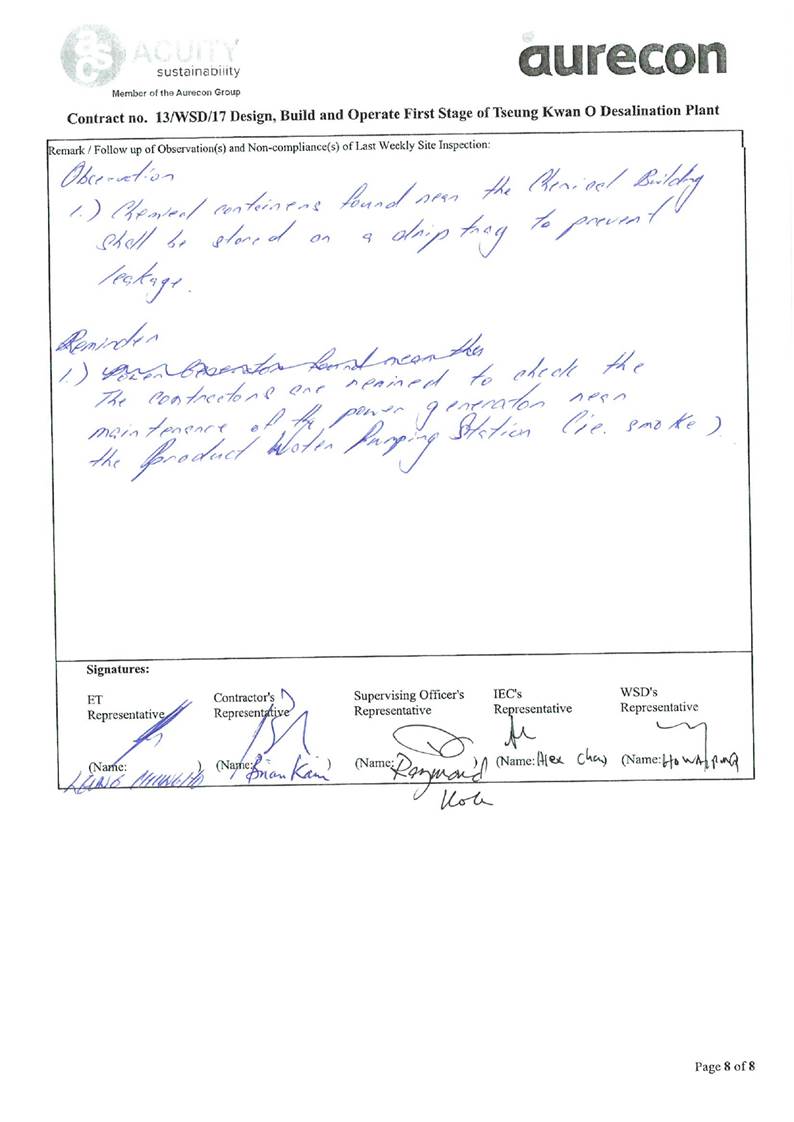 asc ACUITY
sustainability
Member of the Aurecon Group
aurecon
Contract no. 13/WSD/17 Design, Build and Operate First Stage of Tseung Kwan O Desalination Plant
Remark / Follow up of Observation(s) and Non-compliance(s) of Last Weekly Site Inspection:
Observation
1.) Chemical containers found near the Chemical Building
shall be stored on a drip tray to prevent
leakage.
Reminder
1.) Power Generator found near the
The contractors are remined to check the
maintenance of the power generator near
the Product Water Pumping Station (ie. smoke).
Signatures:
ET Representative
Contractor's Representative
Supervising Officer's Representative
IEC's Representative
WSD's Representative
(Name: )
(Name: Brian Kam )
(Name: Raymond )
(Name: Alex Chan)
(Name: )
Page 8 of 8